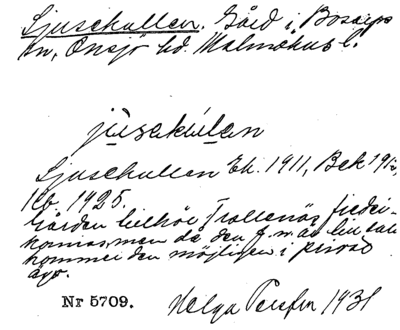 Ljusekullen. Gård i Bosarps
sn, Onsjö hd. Malmöhus l.
jusekúlen
Ljusekullen Ek. 1911, Bek 1912,
Kb. 1925.
Gården tillhör Trollenäs fideikommiss, men då den f. n. är till salu
kommer den möjligen i privat
ägo.
Nr 5709.
Helga Persson 1931